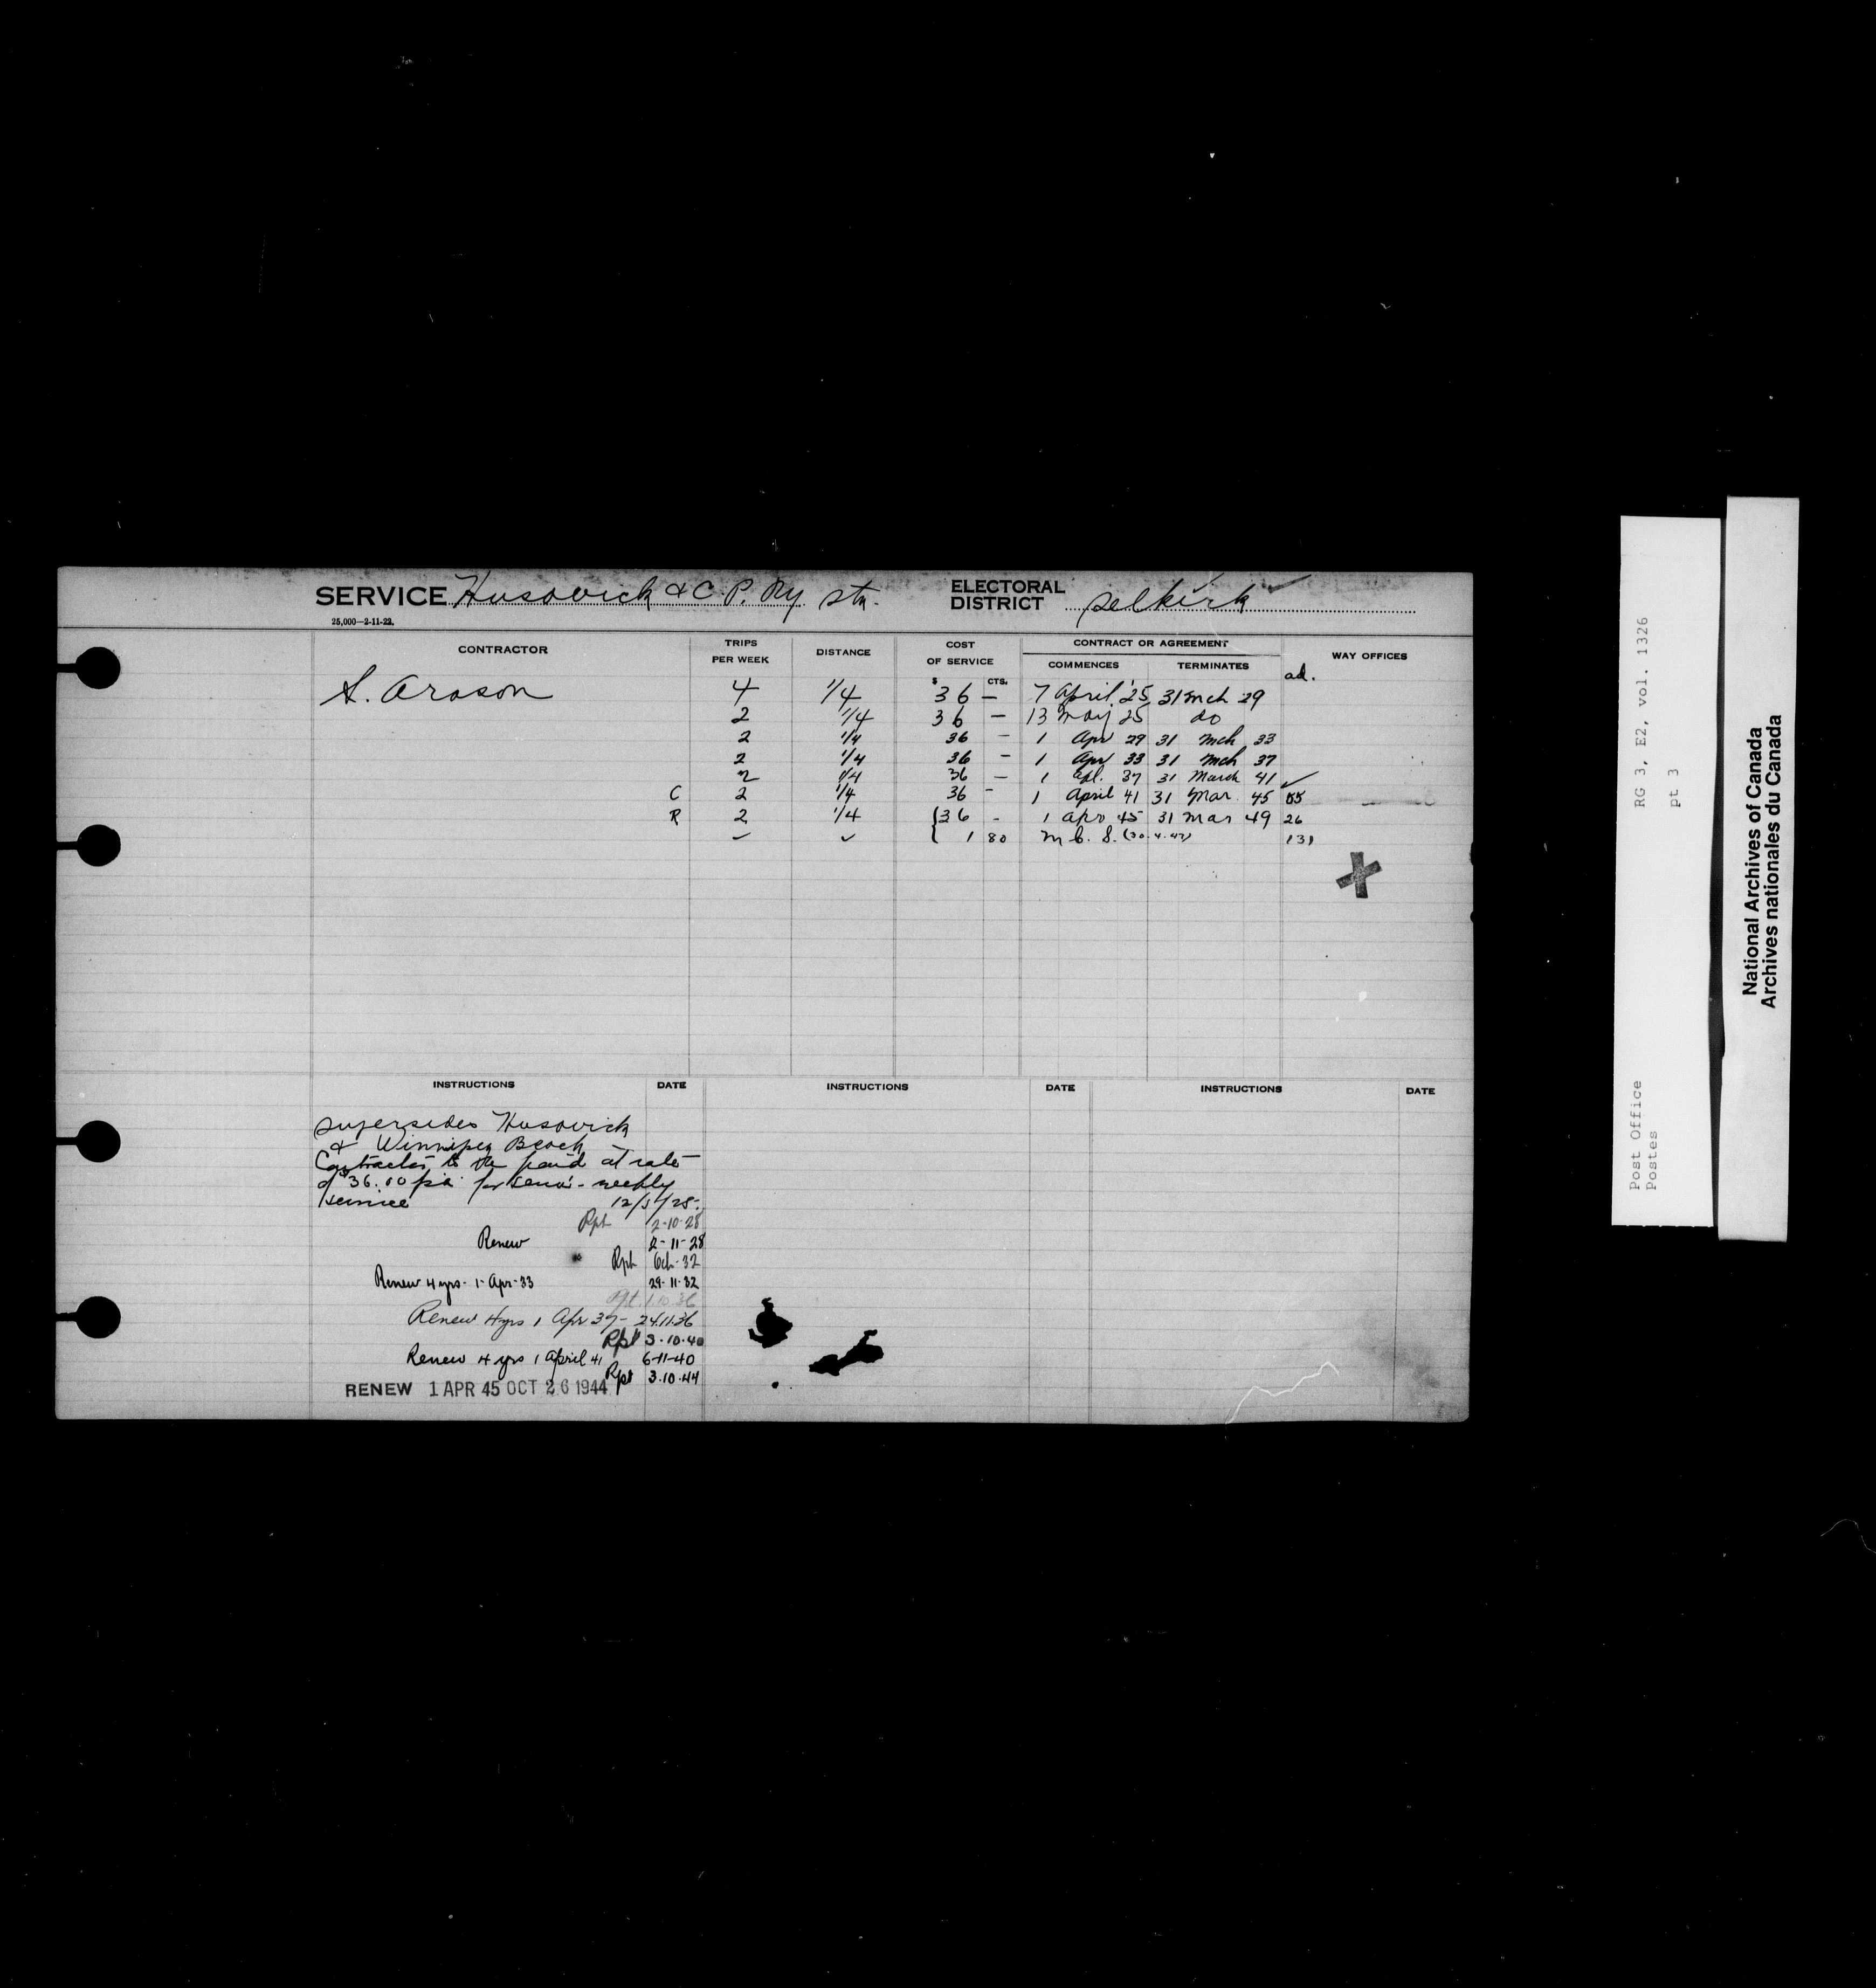 SERVICE Husavick & C. P. Ry stn. ELECTORAL DISTRICT Selkirk
25,000—2-11-22.
CONTRACTOR TRIPS PER WEEK DISTANCE COST OF SERVICE CONTRACT OR AGREEMENT WAY OFFICES
COMMENCES TERMINATES
$ CTS. ad.
S. Arason 4 1/4 36 — 7 April '25 31 Mch 29
2 1/4 36 — 13 May 25 do
2 1/4 36 — 1 Apr 29 31 Mch 33
2 1/4 36 — 1 Apr 33 31 Mch 37
2 1/4 36 — 1 Apl. 37 31 March 41
C 2 1/4 36 - 1 April 41 31 Mar. 45 55
R 2 1/4 {36 - 1 Apr 45 31 Mar 49 26
1 80 M.C.S. 131
INSTRUCTIONS DATE INSTRUCTIONS DATE INSTRUCTIONS DATE
Supersedes Husavick
& Winnipeg Beach
Contractor to be paid at rate
of $36.00 p.a. for semi-weekly
service 12/5/25.
Rpt 2-10-28
Renew 2-11-28
Rpt Oct-32
Renew 4 yrs - 1-Apr-33 29-11-32
Rpt. 1.10.36
Renew 4 yrs 1 Apr 37 - 24.11.36
Rpt 3.10.40
Renew 4 yrs 1 April 41 6-11-40
Rpt 3.10.44
RENEW 1 APR 45 OCT 26 1944
RG 3, E2, vol. 1326
pt 3
Post Office
Postes
National Archives of Canada
Archives nationales du Canada